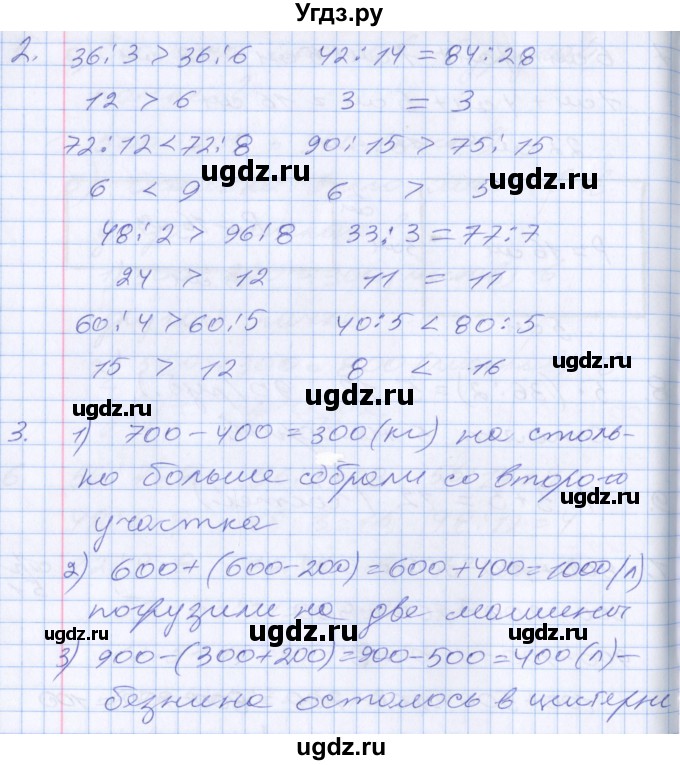 Угдз.ру
2. 36:3 > 36:6 42:14 = 84:28
12 > 6 3 = 3
72:12 < 72:8 90:15 > 75:15
ugdz.ru
ugdz.ru
6 < 9 6 > 5
48:2 > 96:8 33:3 = 77:7
24 > 12 11 = 11
60:4 > 60:5 40:5 < 80:5
15 > 12 8 < 16
ugdz.ru
ugdz.ru
ugdz.ru
3. 1) 700 - 400 = 300 (кг) на столь-
ко больше собрали со второго
ugdz.ru
участка
2) 600 + (600 - 200) = 600 + 400 = 1000 (л)
погрузили на две машины
ugdz.ru
ugdz.ru
ugdz.ru
3) 900 - (300 + 200) = 900 - 500 = 400 (л) -
безнина осталось в цистерні
ugdz.ru